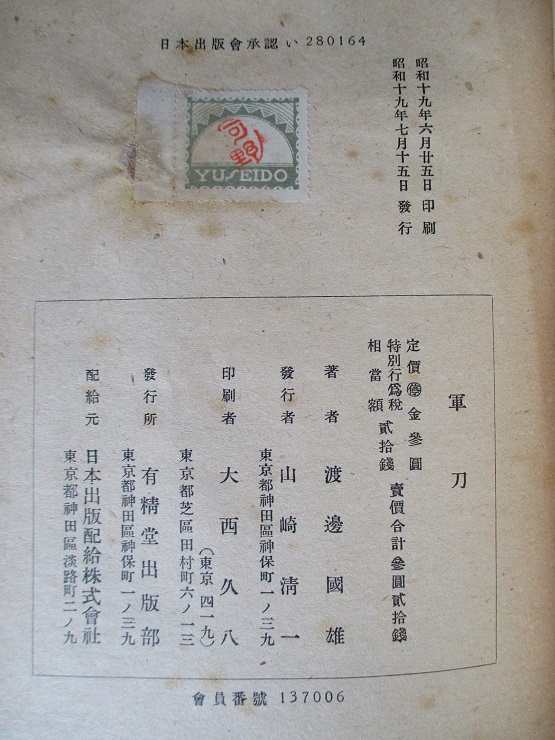 日本出版會承認 い 280164
昭和十九年六月廿五日 印刷
昭和十九年七月十五日 發行
YUSEIDO
軍刀
定價 停 金參圓
特別行爲税相當額 貳拾錢
賣價合計 參圓貳拾錢
著者 渡邊國雄
東京都神田區神保町一ノ三九
發行者 山崎淸一
東京都芝區田村町六ノ一三
印刷者 (東京四一九) 大西久八
東京都神田區神保町一ノ三九
發行所 有精堂出版部
東京都神田區淡路町二ノ九
配給元 日本出版配給株式會社
會員番號 137006